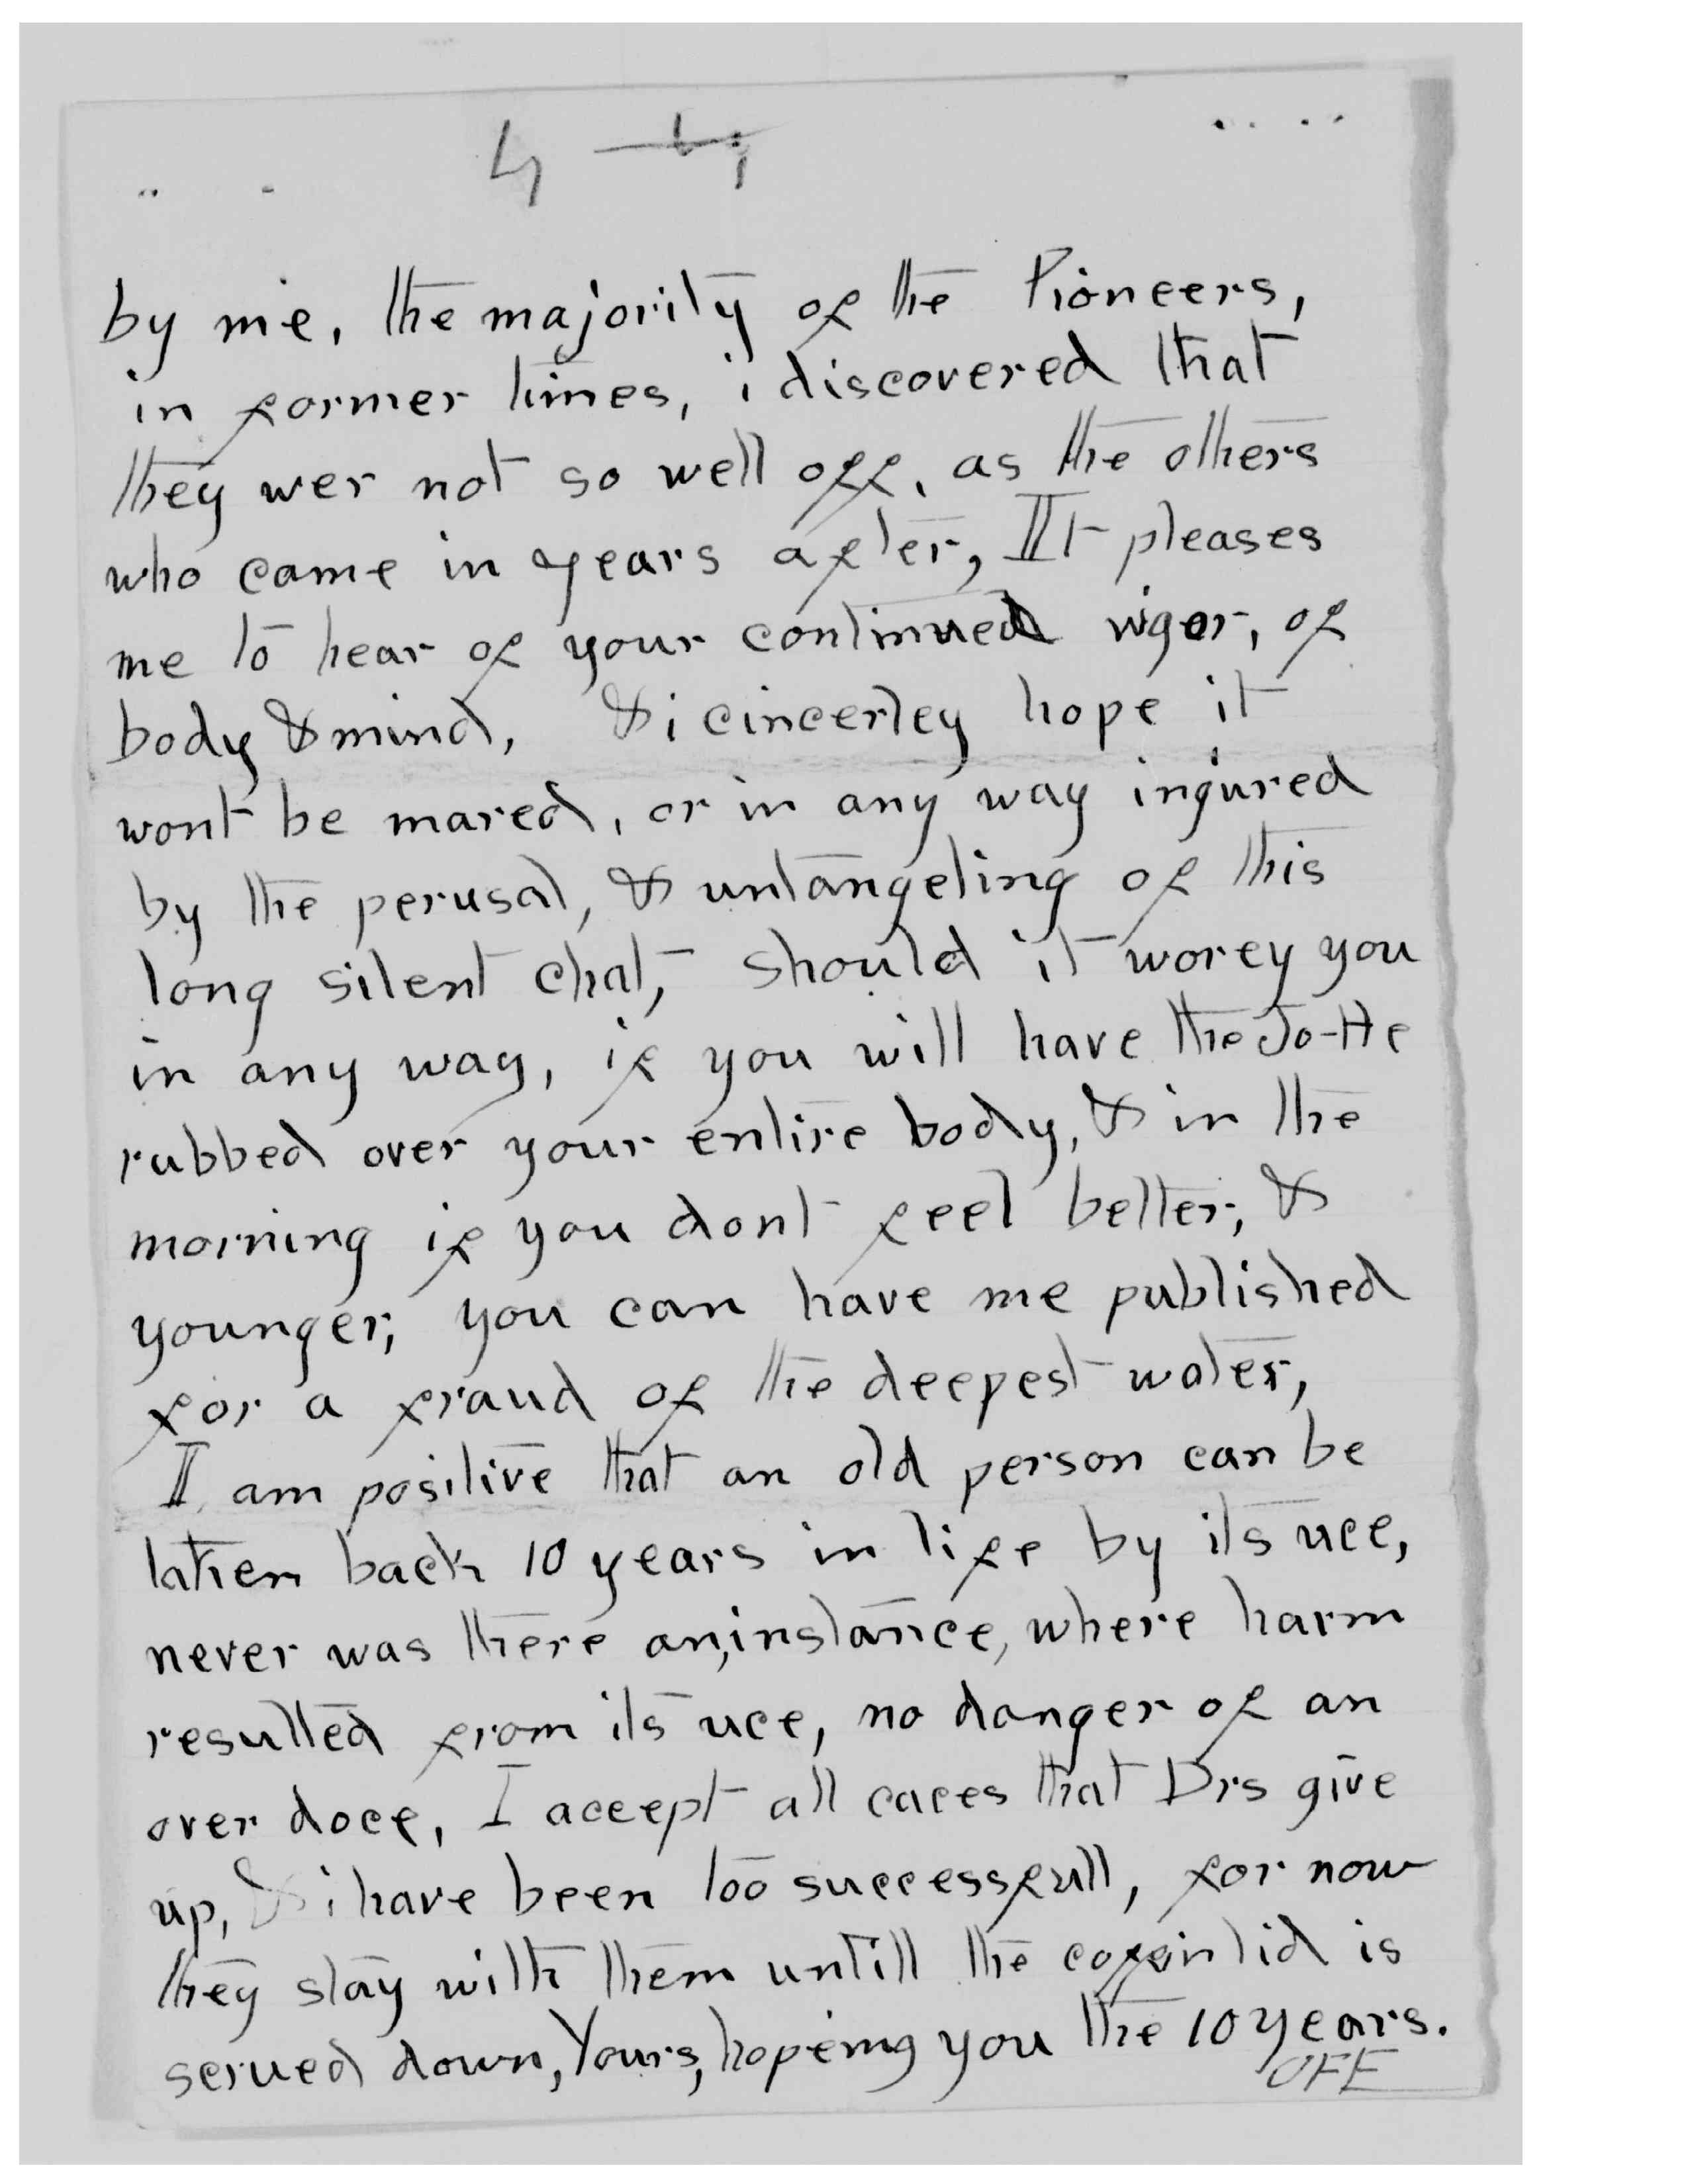 4
by me, the majority of the Pioneers,
in former times, i discovered that
they wer not so well off, as the others
who came in years after, It pleases
me to hear of your continued vigor, of
body & mind, & i cincerley hope it
wont be mared, or in any way ingured
by the perusal, & untangeling of this
long silent chat, should it worey you
in any way, if you will have the Jo-He
rubbed over your entire body, & in the
morning if you dont feel better, &
younger, you can have me published
for a fraud of the deepest water,
I am positive that an old person can be
taken back 10 years in life by its uce,
never was there an, instance, where harm
resulted from its uce, no danger of an
over doce, I accept all caces that Drs give
up, & i have been too successfull, for now
they stay with them untill the coffin lid is
scrued down, Yours, hopeing you the 10 years.
OFE